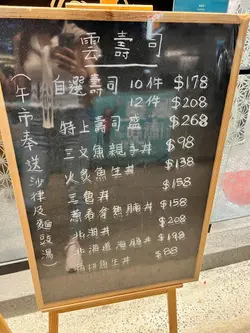 雲壽司
自選壽司 10件 $178
12件 $208
特上壽司盛 $268
三文魚親子丼 $98
火炙魚生丼 $138
三色丼 $158
蔥吞拿魚腩丼 $158
北海丼 $208
北海道海膽丼 $198
魚生丼 $88
(午市奉送沙律及麵豉湯)